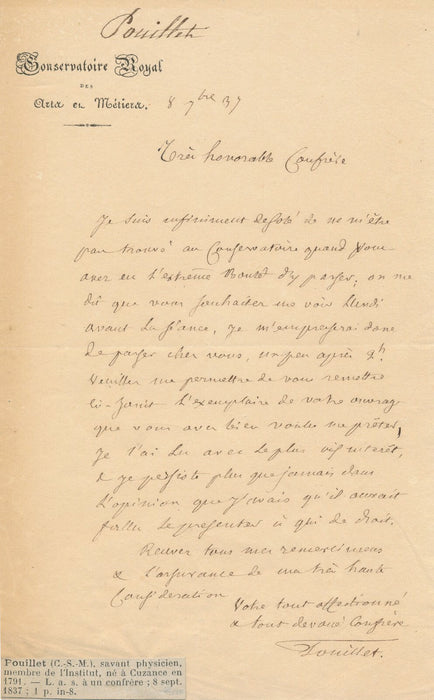 Pouillet
Conservatoire Royal
DES
Arts et Métiers.
8 7bre 37
Très honorable Confrère
Je suis infiniment désolé de ne m'être
pas trouvé au Conservatoire quand vous
avez eu l'extrême bonté d'y passer; on me
dit que vous souhaitez me voir lundi
avant la séance, je m'empresserai donc
de passer chez vous, un peu après 2h
Veuillez me permettre de vous remettre
ci-joint l'exemplaire de votre ouvrage
que vous avez bien voulu me prêter,
je l'ai lu avec le plus vif intérêt,
& je persiste plus que jamais dans
l'opinion que j'avais qu'il aurait
fallu le présenter à qui de droit.
Recevez tous mes remerciemens
& l'assurance de ma très haute
Considération
Votre tout affectionné
& tout dévoué Confrère
Pouillet.
Pouillet (C.-S.-M.), savant physicien,
membre de l'Institut, né à Cuzance en
1791. — L. a. s. à un confrère; 8 sept.
1837; 1 p. in-8.